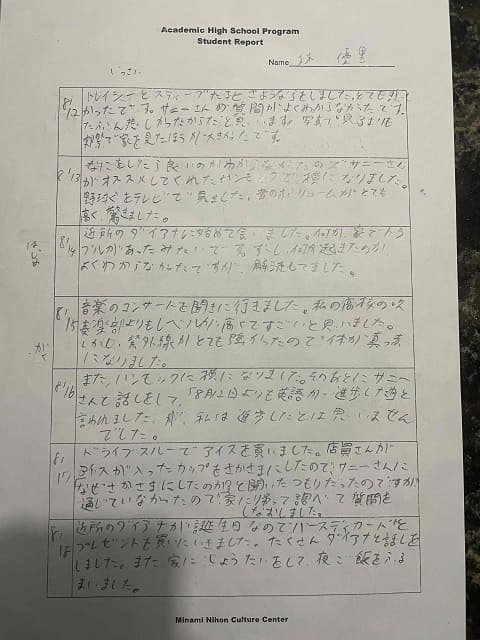 Academic High School Program
Student Report
Name 林 優里
じっさい
8/12
トレイシーとスティーブたちとさようならをしました。とても悲し
かったです。サニーさんの質問がよくわからなかったです。
たぶん悲しかったからだと思います。写真で見るよりも
実際で家を見たほうが大きかったです。
8/13
なにをしたら良いのかわからなかったのでサニーさん
がオススメしてくれたハンモックで横になりました。
野球をテレビで見ました。音のボリュームがとても
高く、驚きました。
はじめ
8/14
近所のダイアナに始めて会いました。何か、家でトラ
ブルがあったみたいで
何が起きたのか
よくわからなかったですが、解決してました。
8/15
音楽のコンサートを聞きに行きました。私の高校の吹
奏楽部よりもレベルが高くてすごいと思いました。
しかし、紫外線がとても強かったので体が真っ赤
になりました。
がく
8/16
また、ハンモックに横になりました。そのあとにサニー
さんと話しをして、「8月12日よりも英語が進歩した」と
言われました。が、私は進歩したとは思いません
でした。
8/17
ドライブスルーでアイスを買いました。店員さんが
アイスが入ったカップをさかさまにしたので、サニーさんに
なぜさかさまにしたのか?と聞いたつもりだったのですが
通じていなかったので家に帰って調べて質問を
しなおしました。
8/18
近所のダイアナが誕生日なのでバースディカードと
プレゼントを買いにいきました。たくさんダイアナと話しを
しました。また家にしょうたいをして、夜ご飯をふる
まいました。
Minami Nihon Culture Center